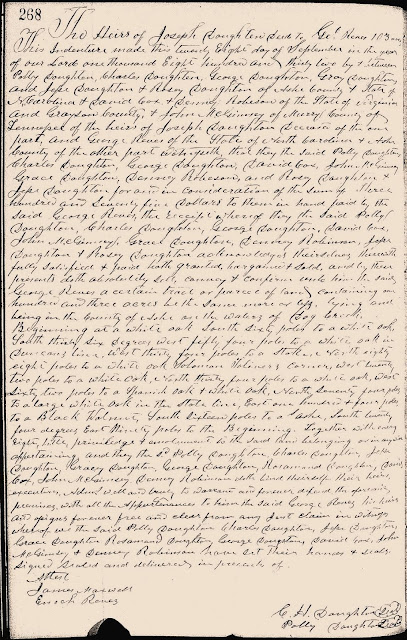 268
The Heirs of Joseph Doughton Deed to Geo Reves 103 acres
This Indenture made this twenty Eight day of September in the year
of our Lord one thousand Eight hundred and thirty two by & between
Polly Doughton, Charles Doughton, George Doughton, Gracy Doughton
and Jope Doughton & Rosey Doughton of Ashe County & State of
N. Carolina & David Cox & Denney Robeson of the State of Virginia
and Grayson County, & John McGimsey of Murry County of
Tennessee of the heirs of Joseph Doughton Deceased of the one
part, and George Reves of the State of North Carolina & Ashe
County of the other part Witnesseth that they the said Polly Doughton
Charles Doughton, George Doughton, David Cox, John McGimsey,
Grace Doughton, Denney Robeson, and Rosey Doughton &
Jope Doughton for and in consideration of the sum of three
hundred and Seventy five Dollars to them in hand paid by the
said George Reves, the receipt whereof they the said Polly
Doughton, Charles Doughton, George Doughton, David Cox,
John McGimsey, Grace Doughton, Denney Robinson, Jope
Doughton & Rosey Doughton acknowledges theirselves therewith
fully satisfied & paid hath granted, bargained & Sold, and by these
presents doth absolutely sell, convey & confirm unto him the said
George Reves a certain tract or parcel of land Containing one
hundred and three acres be the same more or less, lying and
being in the County of Ashe on the waters of Bog Creek.
Beginning at a white oak South sixty poles to a white oak,
South thirty six degrees West fifty four poles to a white oak in
Duncans line, West thirty four poles to a Stake, North eighty
eight poles to a white oak Soloman Wotrings corner, West twenty
two poles to a White Oak, North thirty four poles to a white oak, West
Sixty two poles to a Spanish oak & white oak, North Twenty four poles
to a large white oak in the State line, East one hundred & four poles
to a Black Walnut, South Sixteen poles to a Ashe, South twenty
four degrees East Ninety poles to the Beginning. Together with every
Right, title, priviledge & emolument to the said land belonging or in any wise
appertaining and they the sd Polly Doughton, Charles Doughton, Jope
Doughton, Gracy Doughton, George Doughton, Rosamond Doughton, David
Cox, John McGimsey Denney Robinson doth bind theirself their heirs
executors, Admrs well and truly to Warrant and forever defend the aforesaid
premises, with all the Appurtenances to him the said George Reves his heirs
and assigns forever free and clear from any just claim in witness
whereof we the said Polly Doughton Charles Doughton, Jope Doughton,
Gracie Doughton Rosamond Doughton, George Doughton, David Cox, John
McGimsey & Denney Robinson have set their hands & seals
Signed Sealed and delivered in presents of.
Attest
James Maxwell
Enoch Reves
C. H. Doughton Seal
Polly Doughton Seal